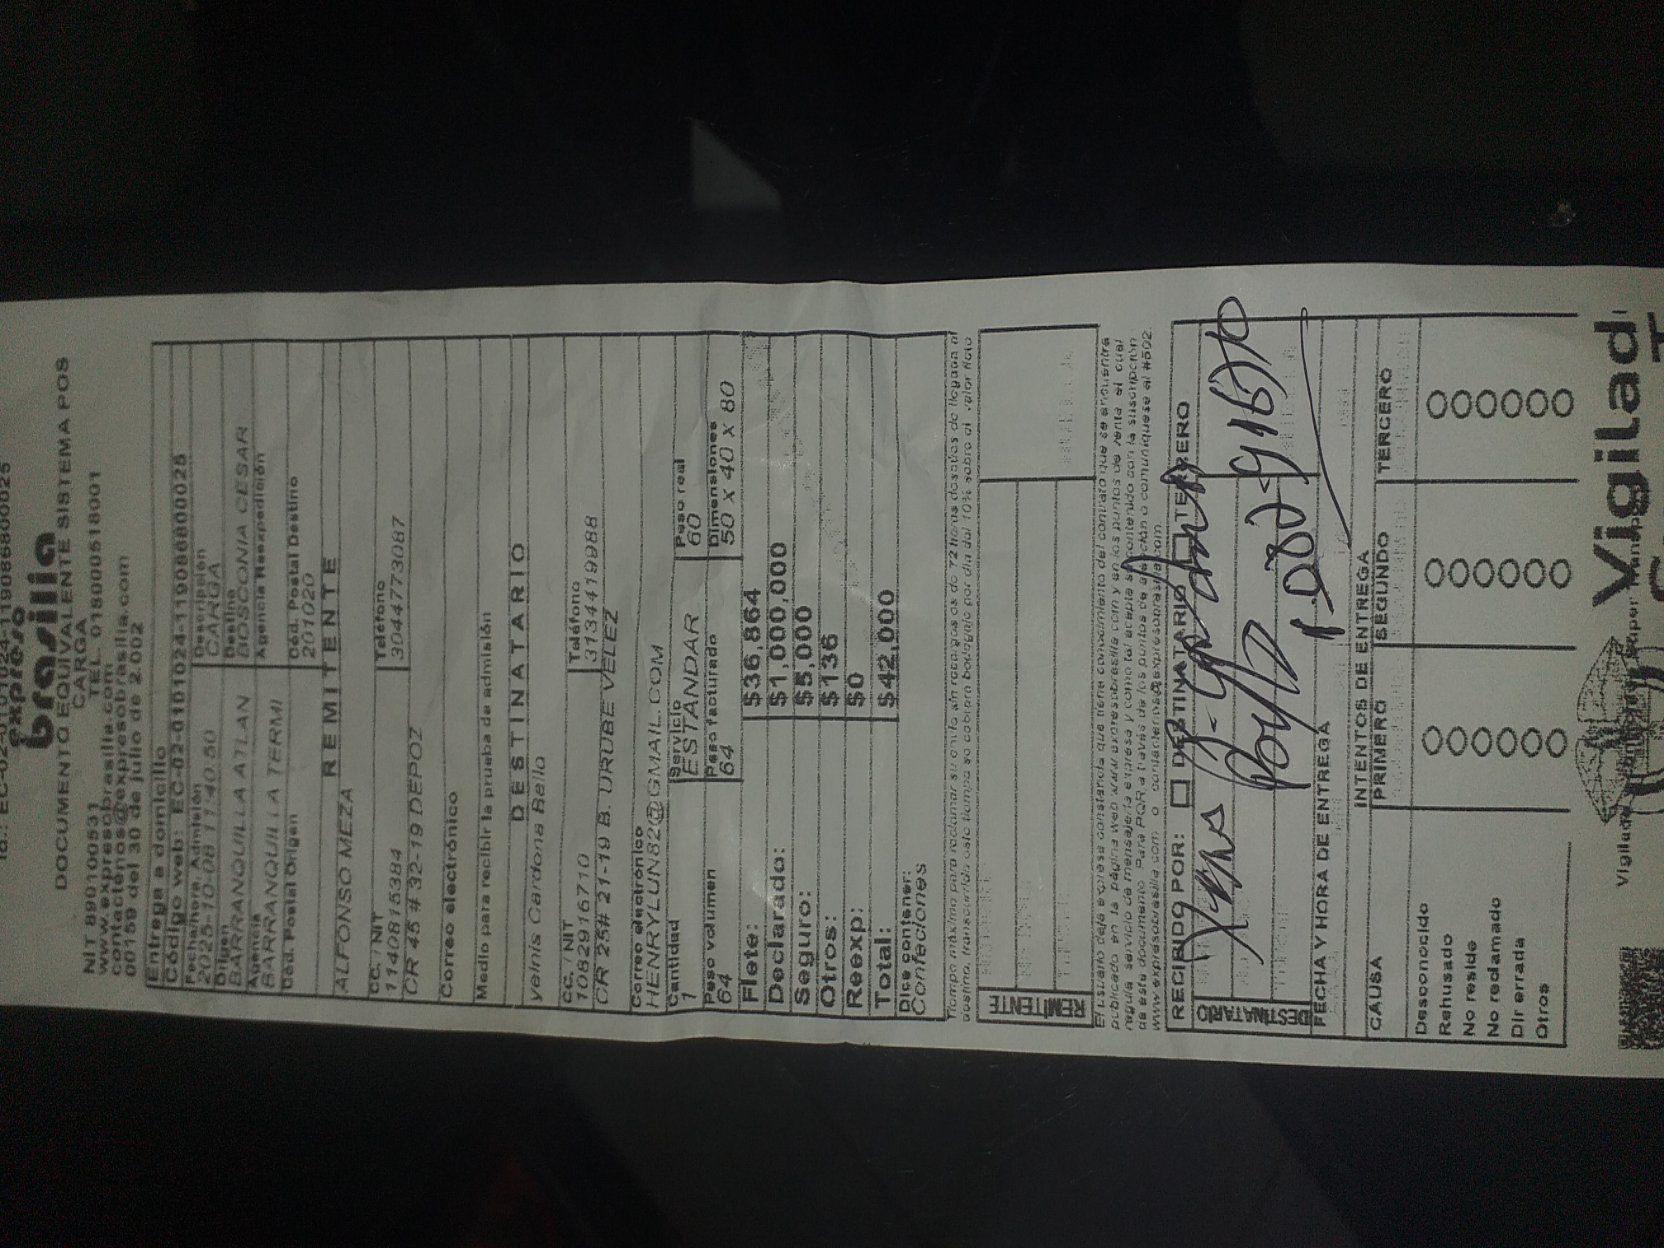 Id.: EC-02-0101024-1190868000025
expreso
brasilia
DOCUMENTO EQUIVALENTE SISTEMA POS
CARGA
NIT 890100531 TEL. 018000518001
www.expresobrasilia.com
contactenos@expresobrasilia.com
00159 del 30 de julio de 2.002
Entrega a domicilio
Código web: EC-02-0101024-1190868000025
Fecha/hora Admisión Descripción
2025-10-08 11:40:50 CARGA
Origen Destino
BARRANQUILLA ATLAN BOSCONIA CESAR
Agencia Agencia Reexpedición
BARRANQUILLA TERMI
Cód. Postal Origen Cód. Postal Destino
201020
REMITENTE
ALFONSO MEZA
CC. / NIT Teléfono
1140815384 3044773087
CR 45 # 32-19 DEPOZ
Correo electrónico
Medio para recibir la prueba de admisión
DESTINATARIO
yelnis Cardona Bello
CC. / NIT Teléfono
1082916710 3134419988
CR 25# 21-19 B. URUBE VELEZ
Correo electrónico
HENRYLUN82@GMAIL.COM
Cantidad Servicio Peso real
1 ESTÁNDAR 60
Peso volumen Peso facturado Dimensiones
64 64 50 x 40 x 80
Flete: $36,864
Declarado: $1,000,000
Seguro: $5,000
Otros: $136
Reexp: $0
Total: $42,000
Dice contener:
Confeciones
Tiempo máximo para reclamar su envío sin recargos es de 72 horas después de llegada al
destino, transcurrido este tiempo se cobra bodegaje por día del 10% sobre el valor flete
REMITENTE
El usuario deja expresa constancia que tiene conocimiento del contrato que se encuentra
publicado en la página web www.expresobrasilia.com y en los puntos de venta el cual
regula servicio de mensajería expresa y como tal acepta su contenido con la suscripción
de este documento. Para PQR a través de los puntos de atención o comuníquese al #502
www.expresobrasilia.com o contactenos@expresobrasilia.com
RECIBIDO POR: DESTINATARIO TERCERO
DESTINATARIO
1.082-916710
FECHA Y HORA DE ENTREGA
INTENTOS DE ENTREGA
CAUSA PRIMERO SEGUNDO TERCERO
Desconocido
Rehusado
No reside
No reclamado
Dir errada
Otros